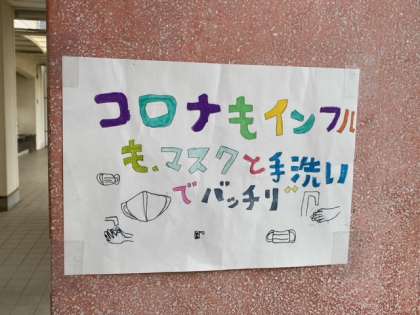 コロナもインフル
も、マスクと手洗い
でバッチリ゛